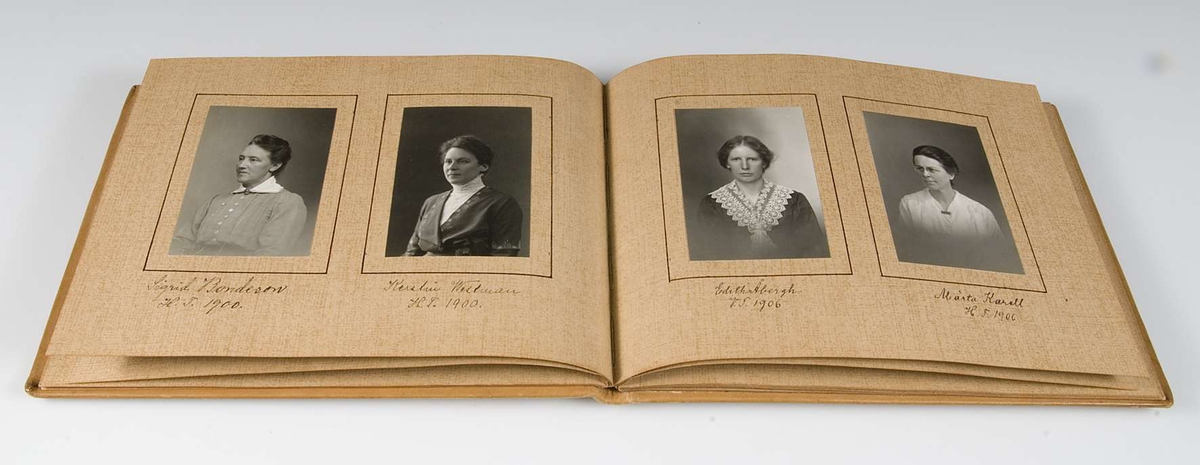 Sigrid Bonderon
H. T. 1900.
Kerstin Wellman
H.T. 1900.
Edith Åbergh.
V.T. 1906
Märta Karell
H. T. 1906